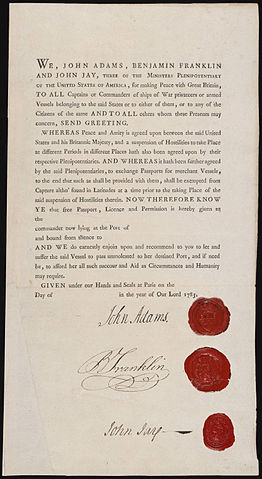 WE, JOHN ADAMS, BENJAMIN FRANKLIN
AND JOHN JAY, THREE OF THE MINISTERS PLENIPOTENTIARY
OF THE UNITED STATES OF AMERICA, for making Peace with Great Britain,
TO ALL Captains or Commanders of ships of War privateers or armed
Vessels belonging to the said States or to either of them, or to any of the
Citizens of the same AND TO ALL others whom these Presents may
concern, SEND GREETING.
WHEREAS Peace and Amity is agreed upon between the said United
States and his Britannic Majesty, and a suspension of Hostilities to take Place
at different Periods in different Places hath also been agreed upon by their
respective Plenipotentiaries. AND WHEREAS it hath been further agreed
by the said Plenipotentiaries, to exchange Passports for merchant Vessels,
to the end that such as shall be provided with them, shall be exempted from
Capture altho' found in Latitudes at a time prior to the taking Place of the
said suspension of Hostilities therein. NOW THEREFORE KNOW
YE that free Passport, Licence and Permission is hereby given to
the
commander now lying at the Port of
and bound from thence to
AND WE do earnestly enjoin upon and recommend to you to let and
suffer the said Vessel to pass unmolested to her destined Port, and if need
be, to afford her all such succour and Aid as Circumstances and Humanity
may require.
GIVEN under our Hands and Seals at Paris on the
Day of in the year of Our Lord 1783.
John Adams
B Franklin
John Jay